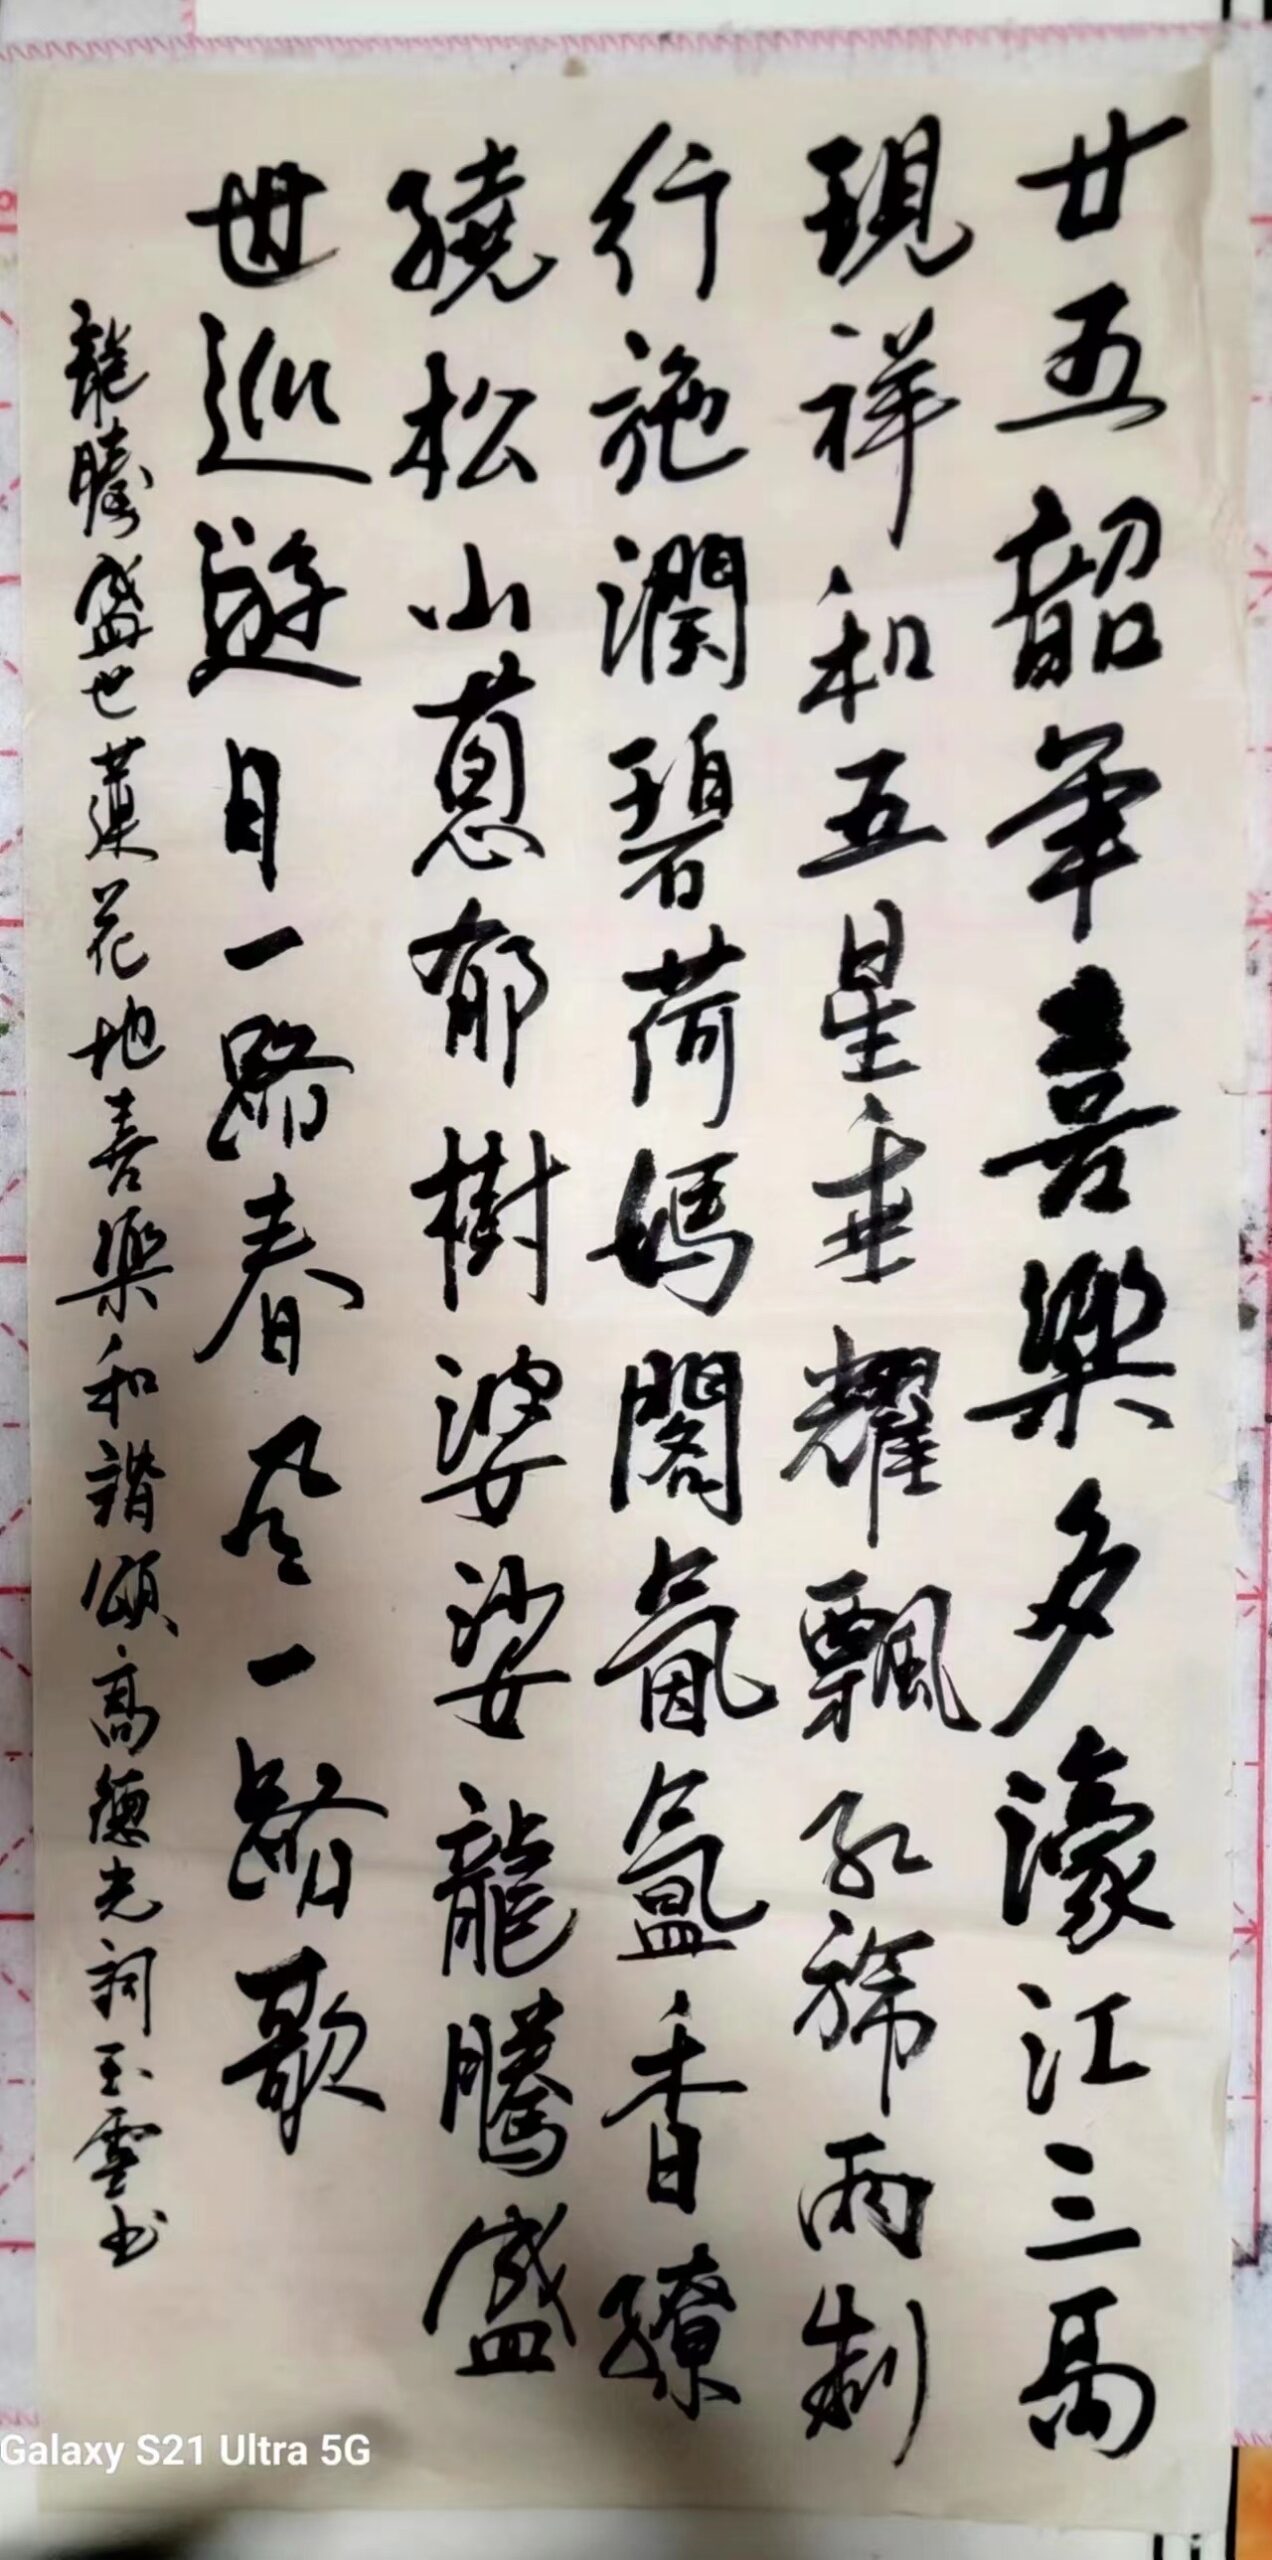 廿五韶華喜樂多濠江三禺
現祥和五星垂耀飄紅旆兩制
行施潤碧荷媽閣氤氳香繚
繞松山蔥郁樹婆娑龍騰盛
世巡遊日一路春風一路歌
龍騰盛世蓮花地喜樂和諧頌高德光詞玉雲书
Galaxy S21 Ultra 5G